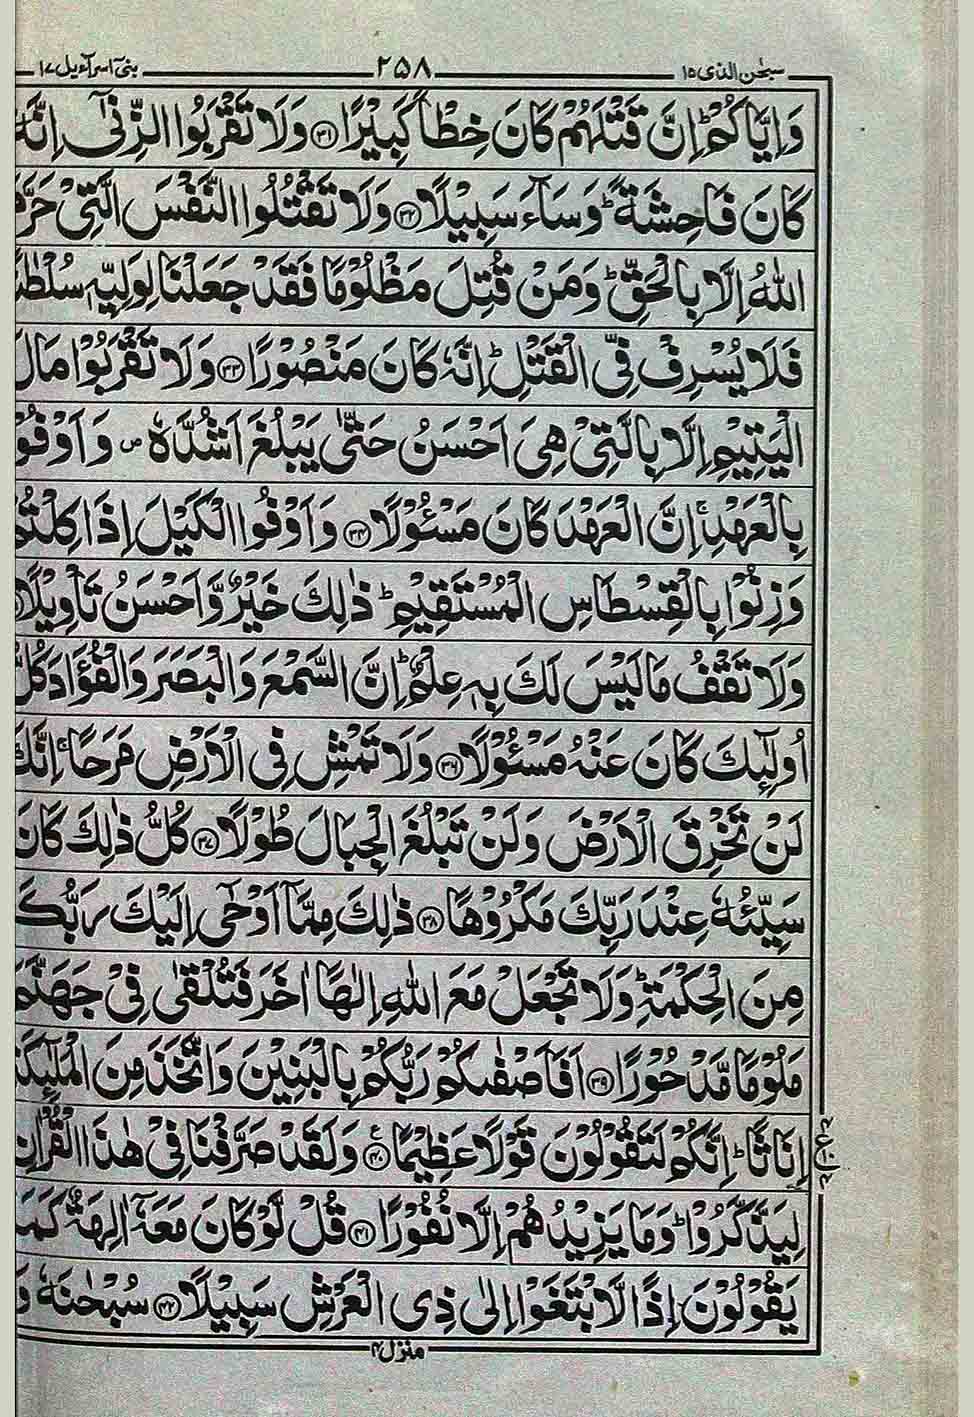 سبحٰن الذی ۱۵ ۲۵۸ بنیٓ اسرآءیل ۱۷
وَاِيَّاكُمْ ؕ اِنَّ قَتْلَهُمْ كَانَ خِطْاً كَبِيْرًا ﴿۳۱﴾ وَلَا تَقْرَبُوا الزِّنٰٓى اِنَّهٗ
كَانَ فَاحِشَةً ؕ وَسَآءَ سَبِيْلًا ﴿۳۲﴾ وَلَا تَقْتُلُوا النَّفْسَ الَّتِيْ حَرَّمَ
اللّٰهُ اِلَّا بِالْحَقِّ ؕ وَمَنْ قُتِلَ مَظْلُوْمًا فَقَدْ جَعَلْنَا لِوَلِيِّهٖ سُلْطٰنًا
فَلَا يُسْرِفْ فِّى الْقَتْلِ ؕ اِنَّهٗ كَانَ مَنْصُوْرًا ﴿۳۳﴾ وَلَا تَقْرَبُوْا مَالَ
الْيَتِيْمِ اِلَّا بِالَّتِيْ هِيَ اَحْسَنُ حَتّٰى يَبْلُغَ اَشُدَّهٗ ص وَاَوْفُوْا
بِالْعَهْدِ ۚ اِنَّ الْعَهْدَ كَانَ مَسْئُوْلًا ﴿۳۴﴾ وَاَوْفُوا الْكَيْلَ اِذَا كِلْتُمْ
وَزِنُوْا بِالْقِسْطَاسِ الْمُسْتَقِيْمِ ؕ ذٰلِكَ خَيْرٌ وَّاَحْسَنُ تَاْوِيْلًا
وَلَا تَقْفُ مَا لَيْسَ لَكَ بِهٖ عِلْمٌ ؕ اِنَّ السَّمْعَ وَالْبَصَرَ وَالْفُؤَادَ كُلُّ
اُولٰٓئِكَ كَانَ عَنْهُ مَسْئُوْلًا ﴿۳۶﴾ وَلَا تَمْشِ فِى الْاَرْضِ مَرَحًا ۚ اِنَّكَ
لَنْ تَخْرِقَ الْاَرْضَ وَلَنْ تَبْلُغَ الْجِبَالَ طُوْلًا ﴿۳۷﴾ كُلُّ ذٰلِكَ كَانَ
سَيِّئُهٗ عِنْدَ رَبِّكَ مَكْرُوْهًا ﴿۳۸﴾ ذٰلِكَ مِمَّآ اَوْحٰٓى اِلَيْكَ رَبُّكَ
مِنَ الْحِكْمَةِ ؕ وَلَا تَجْعَلْ مَعَ اللّٰهِ اِلٰهًا اٰخَرَ فَتُلْقٰى فِيْ جَهَنَّمَ
مَلُوْمًا مَّدْحُوْرًا ﴿۳۹﴾ اَفَاَصْفٰىكُمْ رَبُّكُمْ بِالْبَنِيْنَ وَاتَّخَذَ مِنَ الْمَلٰٓئِكَةِ
اِنَاثًا ؕ اِنَّكُمْ لَتَقُوْلُوْنَ قَوْلًا عَظِيْمًا ﴿۴۰﴾ وَلَقَدْ صَرَّفْنَا فِيْ هٰذَا الْقُرْاٰنِ
لِيَذَّكَّرُوْا ؕ وَمَا يَزِيْدُهُمْ اِلَّا نُفُوْرًا ﴿۴۱﴾ قُلْ لَّوْ كَانَ مَعَهٗٓ اٰلِهَةٌ كَمَا
يَقُوْلُوْنَ اِذًا لَّابْتَغَوْا اِلٰى ذِى الْعَرْشِ سَبِيْلًا ﴿۴۲﴾ سُبْحٰنَهٗ وَ
منزل ۴